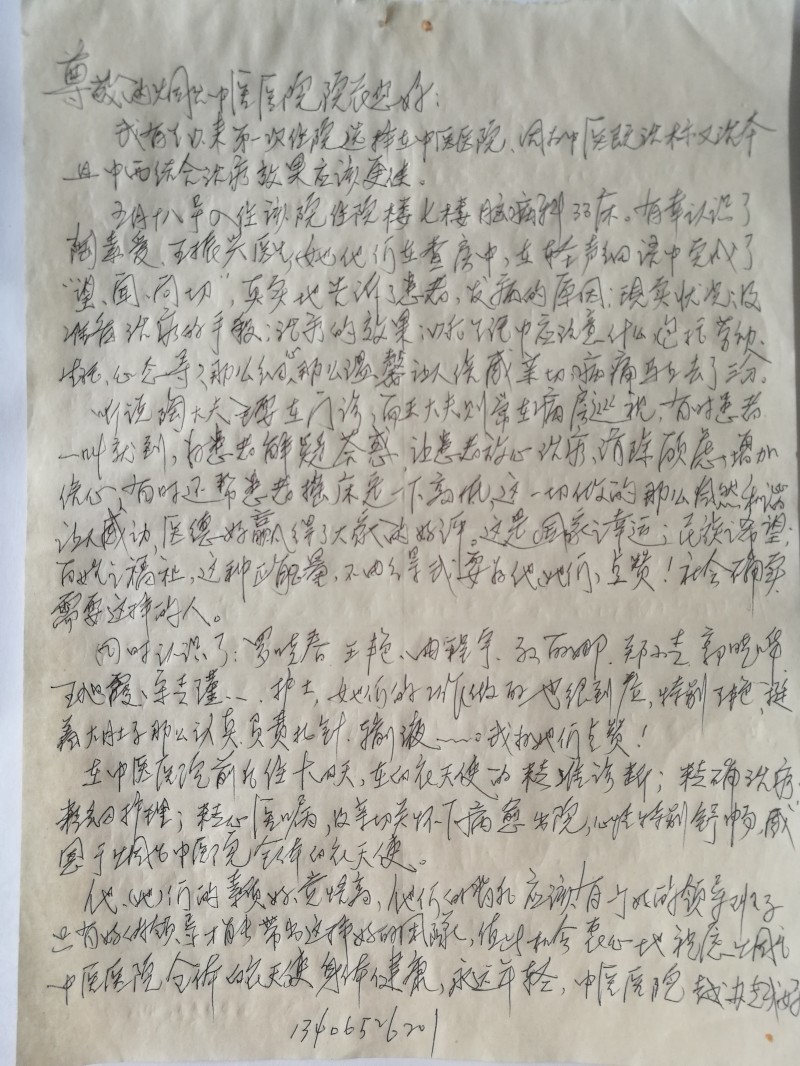 尊敬的烟台中医医院院长您好：
我有生以来第一次住院选择在中医医院、因为中医既治标又治本
且中西结合治疗效果应该更佳。
五月十八号入住该院住院楼七楼脑病科33床。有幸认识了
陶素爱、王振兴医生，她他们在查房中，在轻声细语中完成了
“望、闻、问切”，真实地告诉了患者，发病的原因；现实状况；及
准备治疗的手段；治疗的效果；以后生活中应注意什么包括劳动、
心念等，那么细，那么温馨让人倍感亲切，病痛马上去了三分。
听说陶大夫主要在门诊，而王大夫则常在病房巡视，有时患者
一叫就到，为患者解疑答惑，让患者放心治疗、消除顾虑、增加
信心；有时还帮患者摇床完一下高低，这一切做的那么自然和谐
让人感动，医德好赢得了大家的好评。这是国家之幸运；民族之希望；
百姓之福祉，这种正能量，不由得我要为他她们，点赞！社会确实
需要这样的人。
同时认识了：罗晓春 王艳、曲程宇、 丽娜、郑小克、郭晓
王旭霞、 护士，她们的工作做的也很到位，特别王艳，挺
着大肚子那么认真负责扎针、输液……。我为她们点赞！
在中医医院前后住十四天，在白衣天使的精准诊断；精确治疗、
精细护理；精心医嘱，及亲切关怀下病愈出院，心情特别舒畅，感
恩于烟台中医院全体白衣天使。
他、她们的素质好，觉悟高，他们的背后应该有个好的领导班子
只有好的领导才能带出这样好的团队，值此机会衷心地祝愿烟台
中医医院全体白衣天使身体健康，永远年轻，中医医院越办越好
13406526201